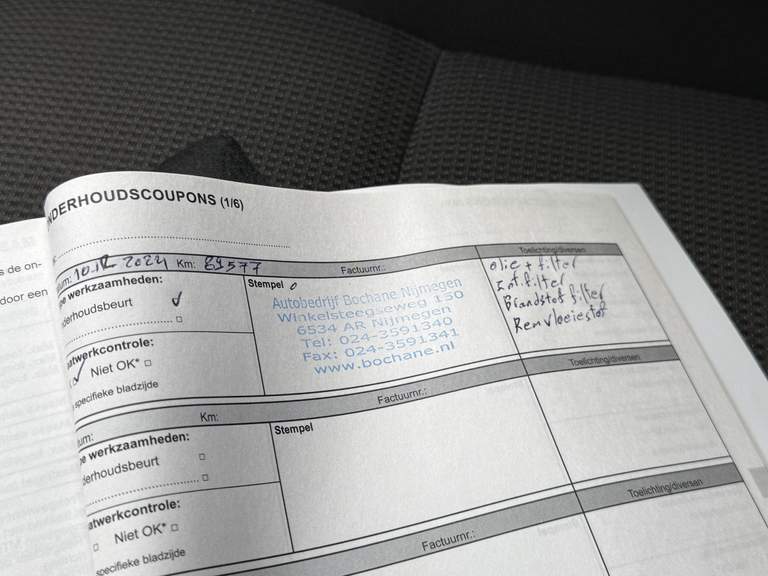 NDERHOUDSCOUPONS (1/6)
s de on-
door een
tum: 10.12.2024 Km: 89577 Factuurnr.: Toelichting/diversen
pe werkzaamheden:
derhoudsbeurt
Stempel
Autobedrijf Bochane Nijmegen
Winkelsteegseweg 150
6534 AR Nijmegen
Tel: 024-3591340
Fax: 024-3591341
www.bochane.nl
olie + filter
Int. filter
Brandstof filter
Remvloeistof
atwerkcontrole:
Niet OK*
specifieke bladzijde
tum: Km: Factuurnr.: Toelichting/diversen
pe werkzaamheden:
derhoudsbeurt
Stempel
atwerkcontrole:
Niet OK*
specifieke bladzijde
Factuurnr.: Toelichting/diversen